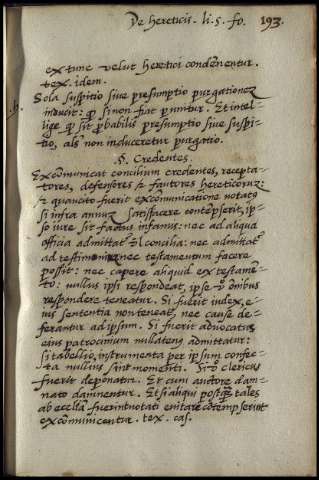 De hereticis. li. 5. fo. 193.
ex tunc velut heretici condēnentur.
tex. idem.
Sola suspitio siue presumptio purgationez
inducit: q̄ si non fiat punitur. Et intel-
lige q̄ sit ꝓbabilis presumptio siue suspi-
tio, als non induceretur purgatio.
§. Credentes.
Excōmunicat concilium credentes, recepta-
tores, defensores & fautores hereticoruz:
& quancito fuerit excōmunicatione notatꝰ
si infra annuz satisfacere contēpserit, ip-
so iure sit factus infamis: nec ad aliqua
officia admittat᷑ vel concilia: nec admittat᷑
ad testimonium nec testamentum facere
possit: nec capere aliquid ex testamē-
to: nullus ipsi respondeat, ipse vō omibus
respondere teneatur. Si fuerit iudex, e-
ius sententia non teneat, nec cause de-
ferantur ad ipsum. Si fuerit aduocatus
eius patrocinium nullatenꝰ admittatur:
si tabellio, instrumenta per ipsum confec-
ta nullius sint momenti. Si vō clericus
fuerit deponatur. Et cum auctore dam-
nato damnentur. Et si aliqui postq̄z tales
ab ecclīa fuerint notati euitare cōtempserint
excōmunicentur. tex. cas.